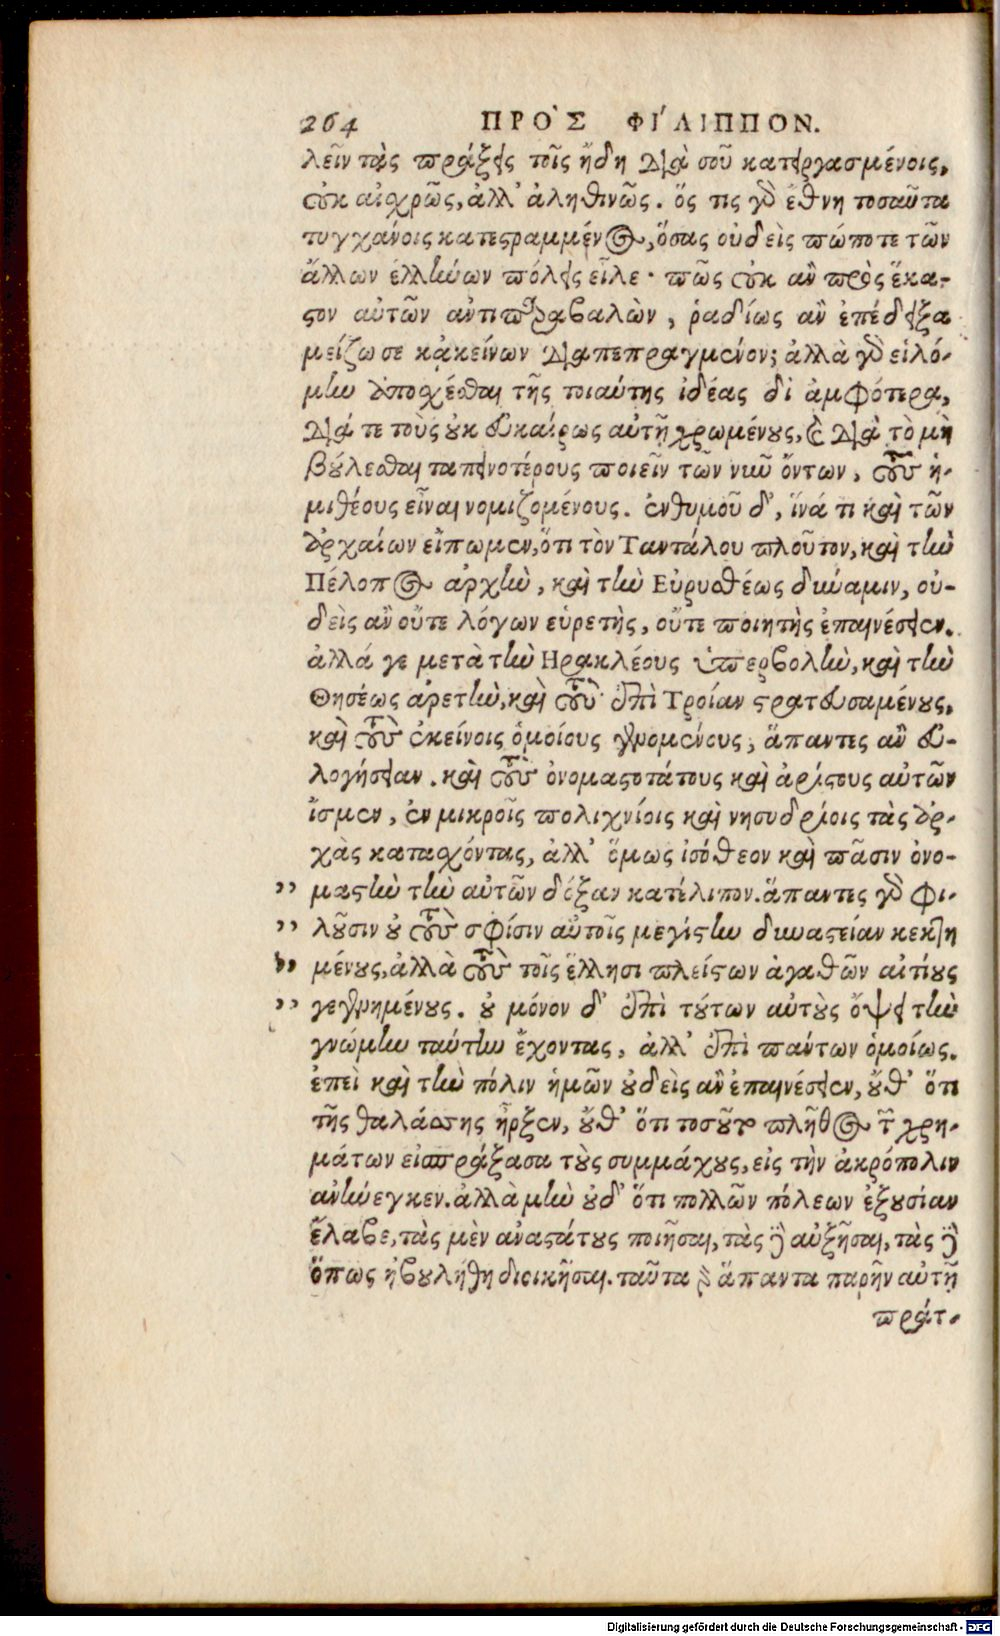 264 ΠΡΟ῾Σ ΦΙ΄ΛΙΠΠΟΝ.
λεῖν τὰς πράξεις τοῖς ἤδη διὰ σοῦ κατειργασμένοις,
οὐκ αἰχρῶς, ἀλλ' ἀληθινῶς. ὅς τις γὰρ ἔθνη τοσαῦτα
τυγχάνοις κατεστραμμένος, ὅσας οὐδεὶς πώποτε τῶν
ἄλλων ἑλλήνων πόλεις εἷλε· πῶς οὐκ ἂν πρὸς ἕκα-
στον αὐτῶν ἀντιπαραβαλὼν, ῥαδίως ἂν ἐπέδειξα
μείζω σε κἀκείνων διαπεπραγμένον; ἀλλὰ γὰρ εἱλό-
μην ἀποσχέσθαι τῆς τοιαύτης ἰδέας δι' ἀμφότερα,
διά τε τοὺς οὐκ εὐκαίρως αὐτῇ χρωμένους, καὶ διὰ τὸ μὴ
βούλεσθαι ταπεινοτέρους ποιεῖν τῶν νῦν ὄντων, τοὺς ἡ-
μιθέους εἶναι νομιζομένους. ἐνθυμοῦ δ', ἵνά τι καὶ τῶν
ἀρχαίων εἴπωμεν, ὅτι τὸν Ταντάλου πλοῦτον, καὶ τὴν
Πέλοπος ἀρχὴν, καὶ τὴν Εὐρυσθέως δύναμιν, οὐ-
δεὶς ἂν οὔτε λόγων εὑρετὴς, οὔτε ποιητὴς ἐπαινέσειεν.
ἀλλά γε μετὰ τὴν Ηρακλέους ὑπερβολὴν, καὶ τὴν
Θησέως ἀρετὴν, καὶ τοὺς ἐπὶ Τροίαν στρατευσαμένους,
καὶ τοὺς ἐκείνοις ὁμοίους γενομένους, ἅπαντες ἂν εὐ-
λογήσειαν. καὶ τοὺς ὀνομαστοτάτους καὶ ἀρίστους αὐτῶν
ἴσμεν, ἐν μικροῖς πολιχνίοις καὶ νησυδρίοις τὰς ἀρ-
χὰς κατασχόντας, ἀλλ' ὅμως ἰσόθεον καὶ πᾶσιν ὀνο-
,, μαστὴν τὴν αὐτῶν δόξαν κατέλιπον. ἅπαντες γὰρ φι-
,, λοῦσιν οὐ τοὺς σφίσιν αὐτοῖς μεγίστην δυναστείαν κεκτη
,, μένους, ἀλλὰ τοὺς τοῖς ἕλλησι πλείστων ἀγαθῶν αἰτίους
,, γεγενημένους. οὐ μόνον δ' ἐπὶ τούτων αὐτοὺς ὄψει τὴν
γνώμην ταύτην ἔχοντας, ἀλλ' ἐπὶ πάντων ὁμοίως.
ἐπεὶ καὶ τὴν πόλιν ἡμῶν οὐδεὶς ἂν ἐπαινέσειεν, οὔθ' ὅτι
τῆς θαλάσσης ἦρξεν, οὔθ' ὅτι τοσοῦτον πλῆθος τῶν χρη-
μάτων εἰσπράξασα τοὺς συμμάχους, εἰς τὴν ἀκρόπολιν
ἀνήνεγκεν. ἀλλὰ μὴν οὐδ' ὅτι πολλῶν πόλεων ἐξουσίαν
ἔλαβε, τὰς μὲν ἀναστάτους ποιῆσαι, τὰς δὲ αὐξῆσαι, τὰς δὲ
ὅπως ἠβουλήθη διοικῆσαι. ταῦτα γὰρ ἅπαντα παρῆν αὐτῇ
πράτ-
Digitalisierung gefördert durch die Deutsche Forschungsgemeinschaft - DFG